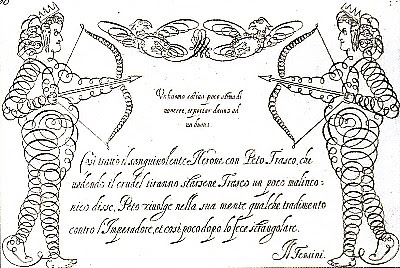 Vn huomo cattiuo poco stima di
nuocere, et poter dannò ad
un buono.
Così trattò il sanguinolente Nerone con Peto Traseo, che
uedendo il crudel tiranno starsene Traseo un poco malinco-
nico disse, Peto riuolge nella sua mente qualche tradimento
contro l'Imperadore, et così poco dopo lo fece strangolare.
Il Tensini.